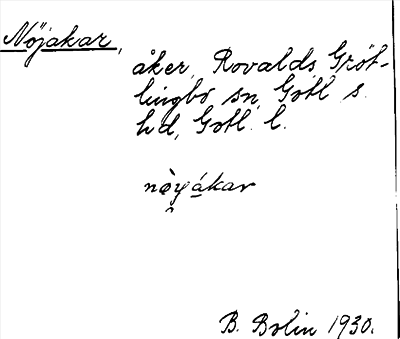 Nöjakar,
åker, Rovalds Gröt-
lingbo sn, Gotl s.
hd, Gotl. l.
nòyákar
B. Bolin 1930.